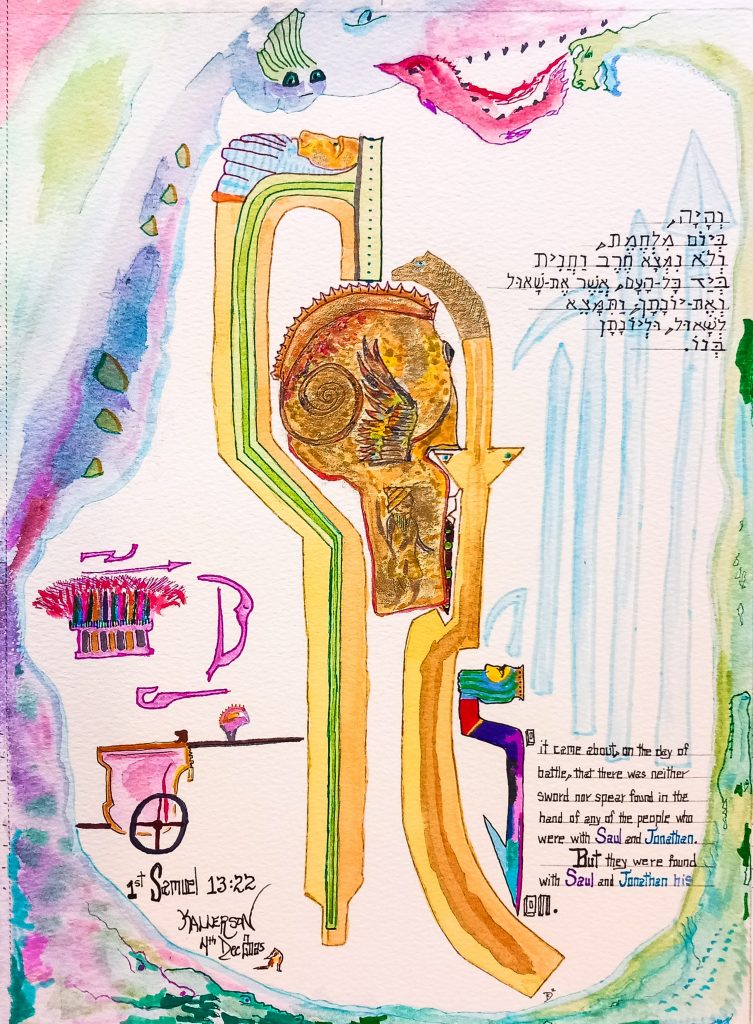 וְהָיָה,
בְּיוֹם מִלְחֶמֶת,
וְלֹא נִמְצָא חֶרֶב וַחֲנִית
בְּיַד כָּל-הָעָם, אֲשֶׁר אֶת-שָׁאוּל
וְאֶת-יוֹנָתָן; וַתִּמָּצֵא
לְשָׁאוּל, וּלְיוֹנָתָן
בְּנוֹ.
it came about, on the day of
battle, that there was neither
sword nor spear found in the
hand of any of the people who
were with Saul and Jonathan.
But they were found
with Saul and Jonathan his
1st Samuel 13:22
KALLERSON